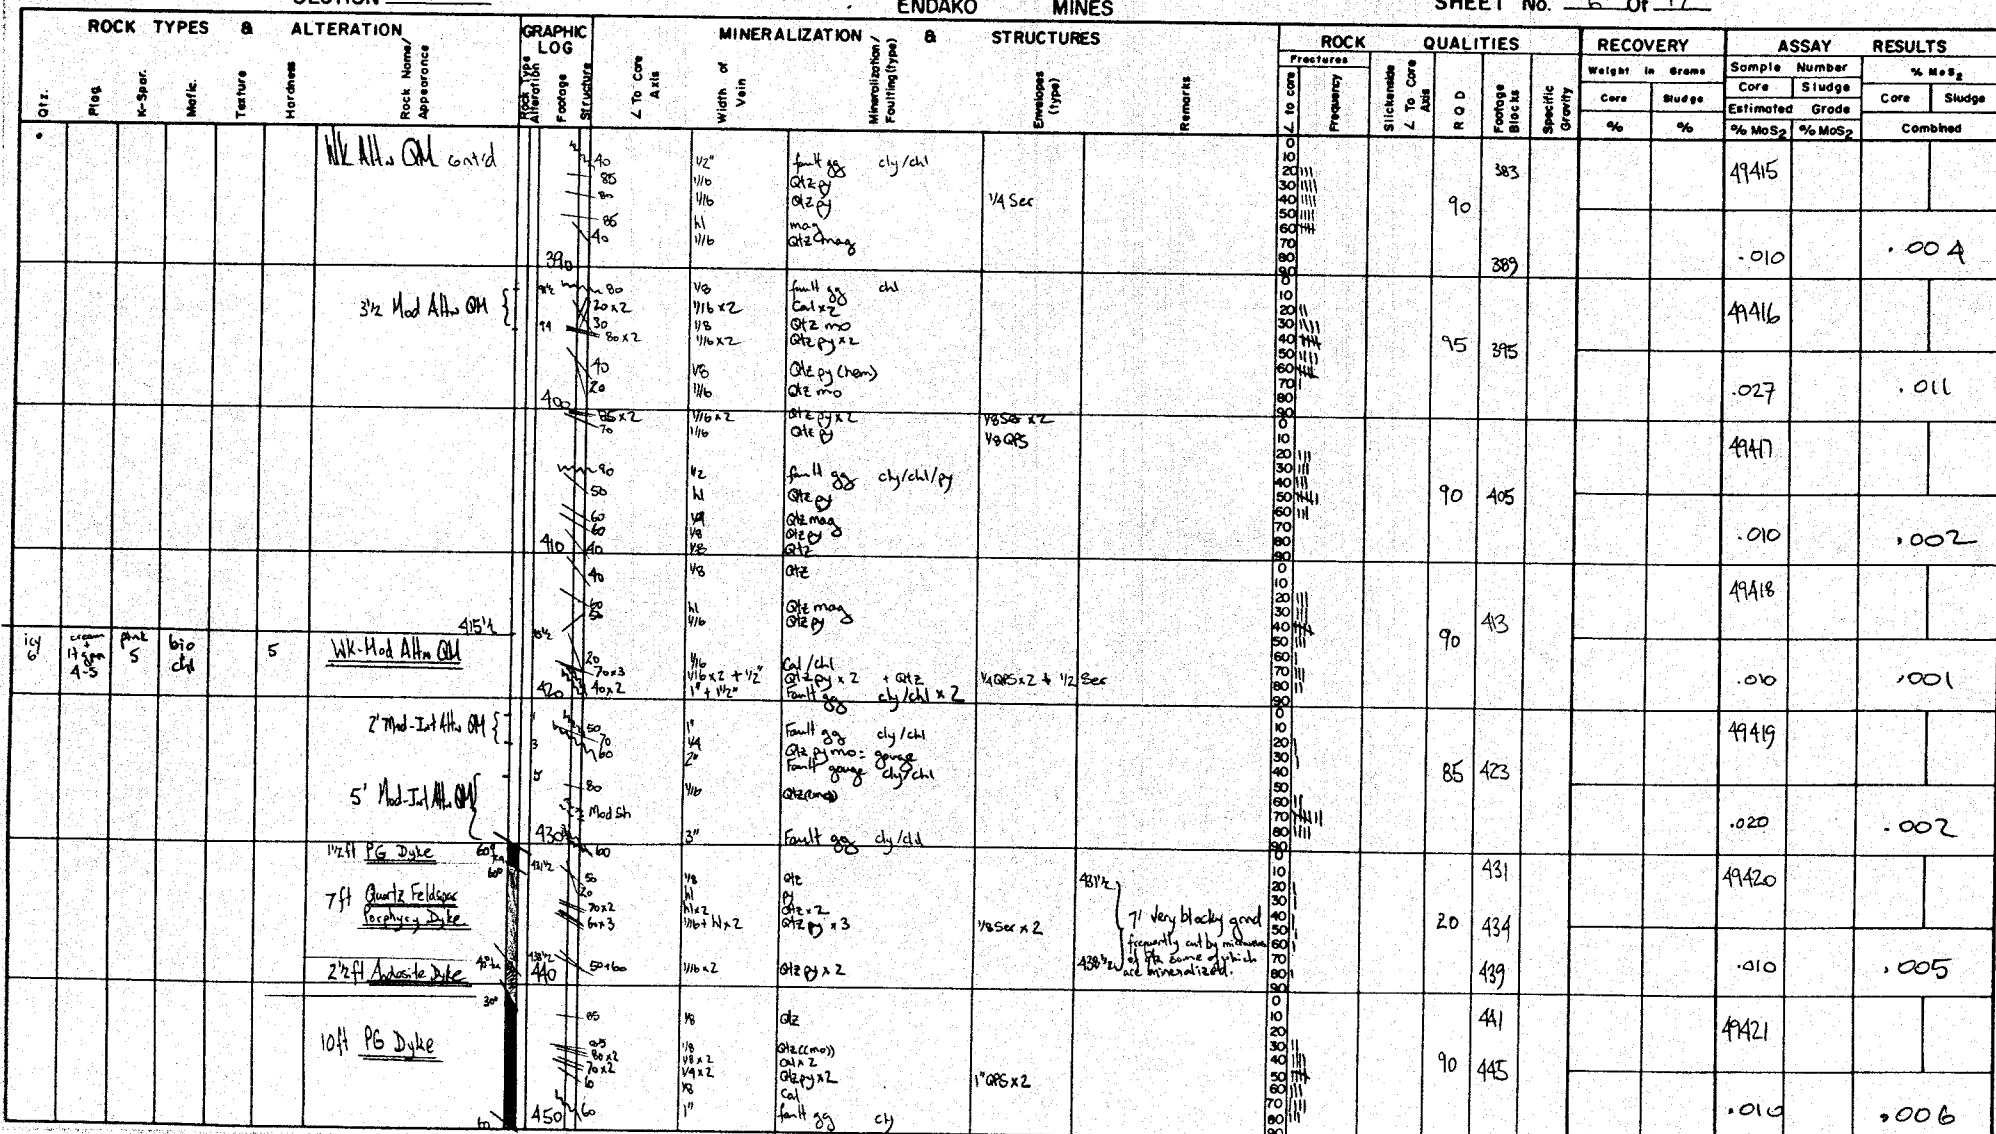 SECTION
ENDAKO MINES
SHEET No. 6 Of 12
ROCK TYPES & ALTERATION
GRAPHIC LOG
MINERALIZATION & STRUCTURES
ROCK QUALITIES
RECOVERY
ASSAY RESULTS
Qtz.
Plag.
K-Spar.
Mafic.
Texture
Hardness
Rock Name/ Appearance
Rock Type Alteration
Footage
Structure
∠ To Core Axis
Width of Vein
Mineralization/ Faulting(type)
Envelopes (type)
Remarks
Fractures
∠ to core
Frequency
Slickenside ∠ To Core Axis
R Q D
Footage Blocks
Specific Gravity
Weight in Grams
Core Sludge
% %
Sample Number
Core Sludge
Estimated Grade
% MoS2 % MoS2
% MoS2
Core Sludge
Combined
Wk Altn QM cont'd
40 1/2" fault gg cly/chl
85 1/16 Qtz py
80 1/16 Qtz py 1/4 Ser
85 hl mag
40 1/16 Qtz mag
390
383
90
389
49415
.010 .004
3 1/2 Mod Altn QM
80 1/8 fault gg chl
20x2 1/16 x2 Cal x2
94 30 1/8 Qtz mo
80x2 1/16 x2 Qtz py x2
40 1/8 Qtz py (hem)
20 1/16 Qtz mo
400
95 395
49416
.027 .011
85x2 1/16 x2 Qtz py x2 1/8 Ser x2
70 1/16 Qtz py 1/8 QPS
90 1/2 fault gg cly/chl/py
50 hl Qtz py
60 Qtz mag
60 1/8 Qtz py
410 40 1/8 Qtz
90 405
49417
.010 .002
40 1/8 Qtz
hl Qtz mag
1/16 Qtz py
415 1/2
icy 6 cream + lt grn 4-5 pink 5 bio chl 5 Wk-Mod Altn QM
20 1/16 Cal/chl
70x3 1/16 x2 + 1/2" Qtz py x2 + Qtz 1/4 QPS x2 + 1/2 Ser
420 40x2 1" + 1 1/2" Fault gg cly/chl x2
90 413
49418
.010 .001
2' Mod-Int Altn QM
50 1" Fault gg cly/chl
70 1/4 Qtz py mo = gouge
60 2" Fault gouge cly/chl
5' Mod-Int Altn QM
80 1/16
Mod Sh
430 60 3" Fault gg cly/chl
85 423
49419
.020 .002
1 1/2 ft PG Dyke
60°
431 1/2
50 1/8 Qtz
20 hl py
70x2 hl x2 Qtz x2
60x3 1/16 + hl x2 Qtz py x3 1/8 Ser x2
7 ft Quartz Feldspar Porphyry Dyke
431 1/2
7' very blocky grnd
frequently cut by
of Qtz some of which
are mineralized.
438 1/2
438 1/2
440 50+60 1/16 x2 Qtz py x2
2 1/2 ft Andesite Dyke
431
20 434
439
49420
.010 .005
30°
85 1/8 Qtz
10 ft PG Dyke
85 1/8 Qtz ((mo))
80x2 1/8 x2 x2
70x2 1/4 x2 Qtz py x2 1" QPS x2
1/8 Cal
450 60 1" fault gg cly
441
90 445
49421
.010 .006
0
10
20
30
40
50
60
70
80
90